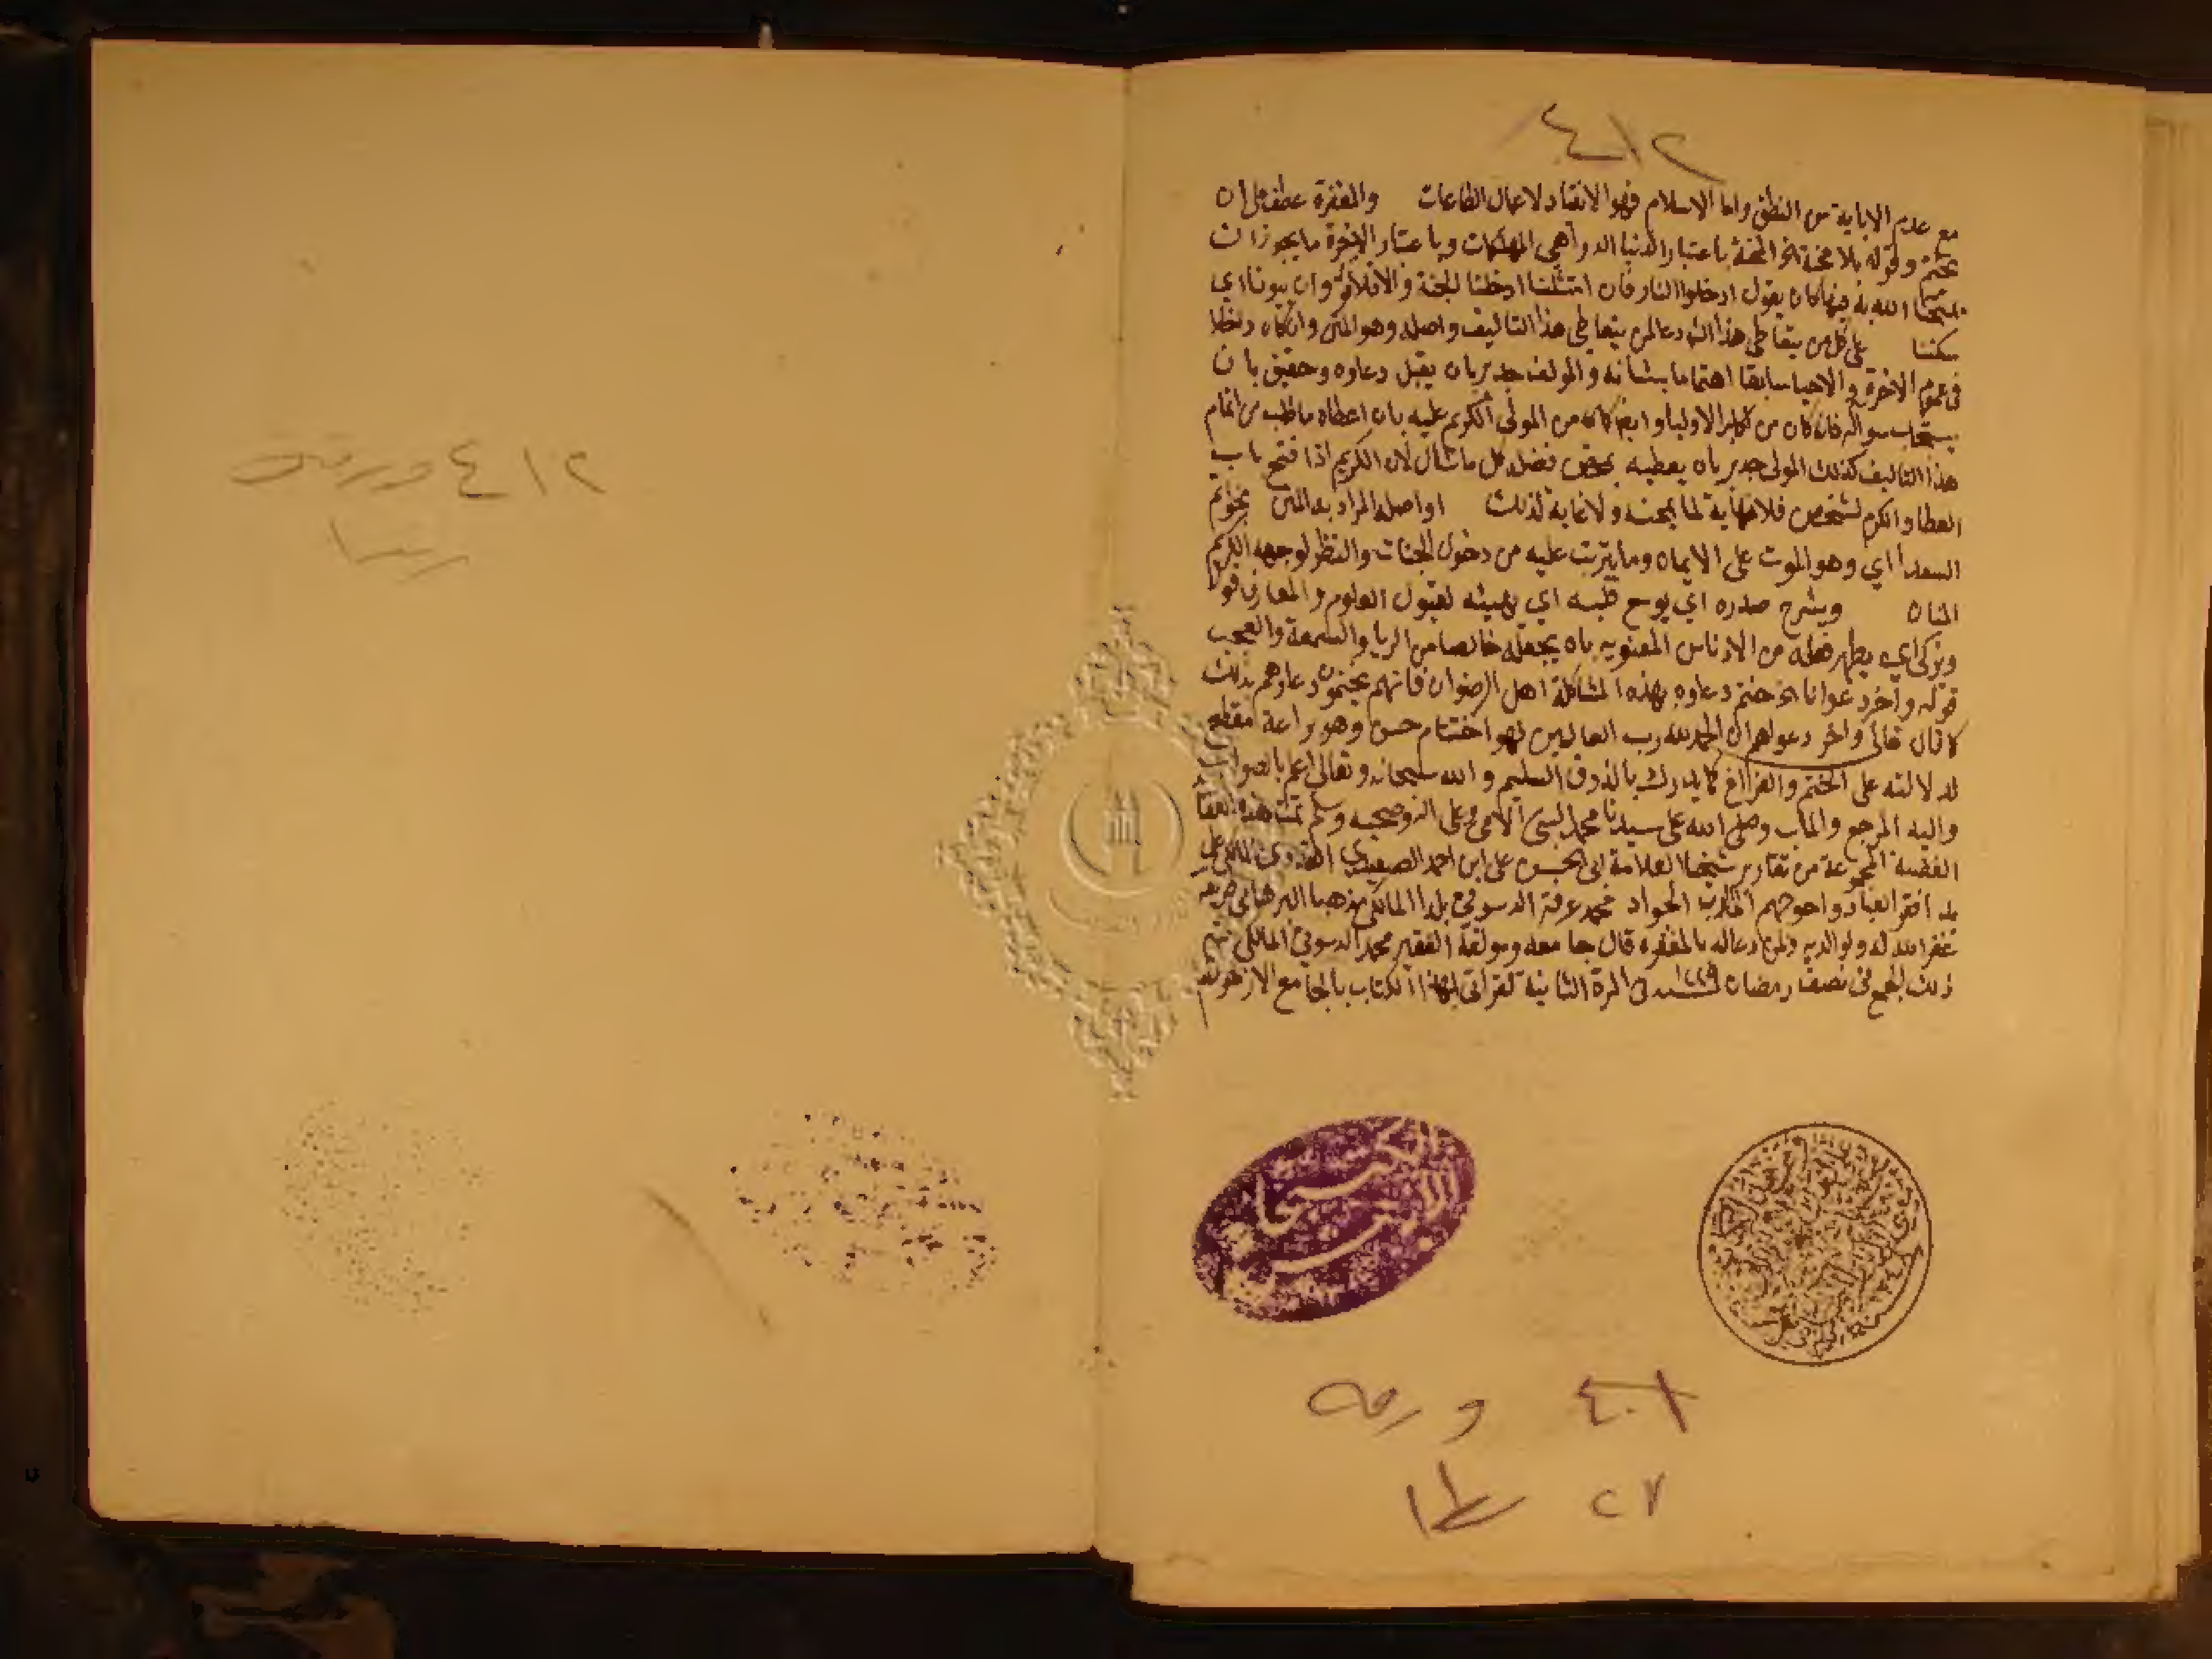 ٤١٢
مع عدم الاباية من النطق واما الاسلام فهو الانقياد لاعمال الطاعات والمغفرة عطف على ان
يختم وقوله بلا محنة الخ المحنة باعتبار الدنيا الدواهي المهلكات وباعتبار الاخرة ما يجوز ان
يمتحنا الله به فيها كان يقول ادخلوا النار فان امتثلنا ادخلنا الجنة والا فلا قوله وان يبونا اي
يسكننا على كل من يتعاطى هذا الشرح دعا لمن يتعاطى هذا التاليف واصله وهو المتن وان كان داخلا
في عموم الاخرة والاحبا سابقا اهتماما بشانه والمولف جدير بان يقبل دعاوه وحقيق بان
يستجاب سواله فانه كان من اكابر الاوليا وايضا كان من المولى الكريم عليه بان اعطاه ما طلبه من اتمام
هذا التاليف كذلك المولى جدير بان يعطيه بمحض فضله كل ما سال لان الكريم اذا فتح باب
العطا والكرم لشخص فلا نهاية لما يمنحه ولا غاية لذلك او اصله المراد به المتن بخواتم
السعدا اي وهو الموت على الايمان وما يترتب عليه من دخول الجنات والنظر لوجهه الكريم
المنان ويشرح صدره اي يوسع قلبه اي يهيئه لقبول العلوم والمعارف قوله
ويزكي اي يطهر فعله من الادناس المعنوية بان يجعله خالصا من الريا والسمعة والعجب
قوله واخر دعوانا الخ ختم دعاوه بهذه المشاكلة اهل الرضوان فانهم يختمون دعاوهم بذلك
كما قال تعالى واخر دعواهم ان الحمد لله رب العالمين فهو اختتام حسن وهو براعة مقطع
لدلالته على الختم والفراغ كما يدرك بالذوق السليم والله سبحانه وتعالى اعلم بالصواب
واليه المرجع والماب وصلى الله على سيدنا محمد النبي الامي وعلى اله وصحبه وسلم تمت هذه
المجموعة من تقارير شيخنا العلامة ابي الحسن علي ابن احمد الصعيدي العدوي المالكي على
يد افقر العباد واحوجهم الجواد محمد عرفة الدسوقي بلدا المالكي مذهبا البرهامي طريقة
غفر الله له ولوالديه ولمن دعا له بالمغفرة قال جامعه ومولفه الفقير محمد الدسوقي المالكي تم
ذلك الجمع في نصف رمضان سنة في المرة الثانية لقراتي لهذا الكتاب بالجامع الازهر
الكتبخانة
الازهرية
٤٠١ ورقه
٢٧ سطرا
٤١٢ ورقه
سطرا